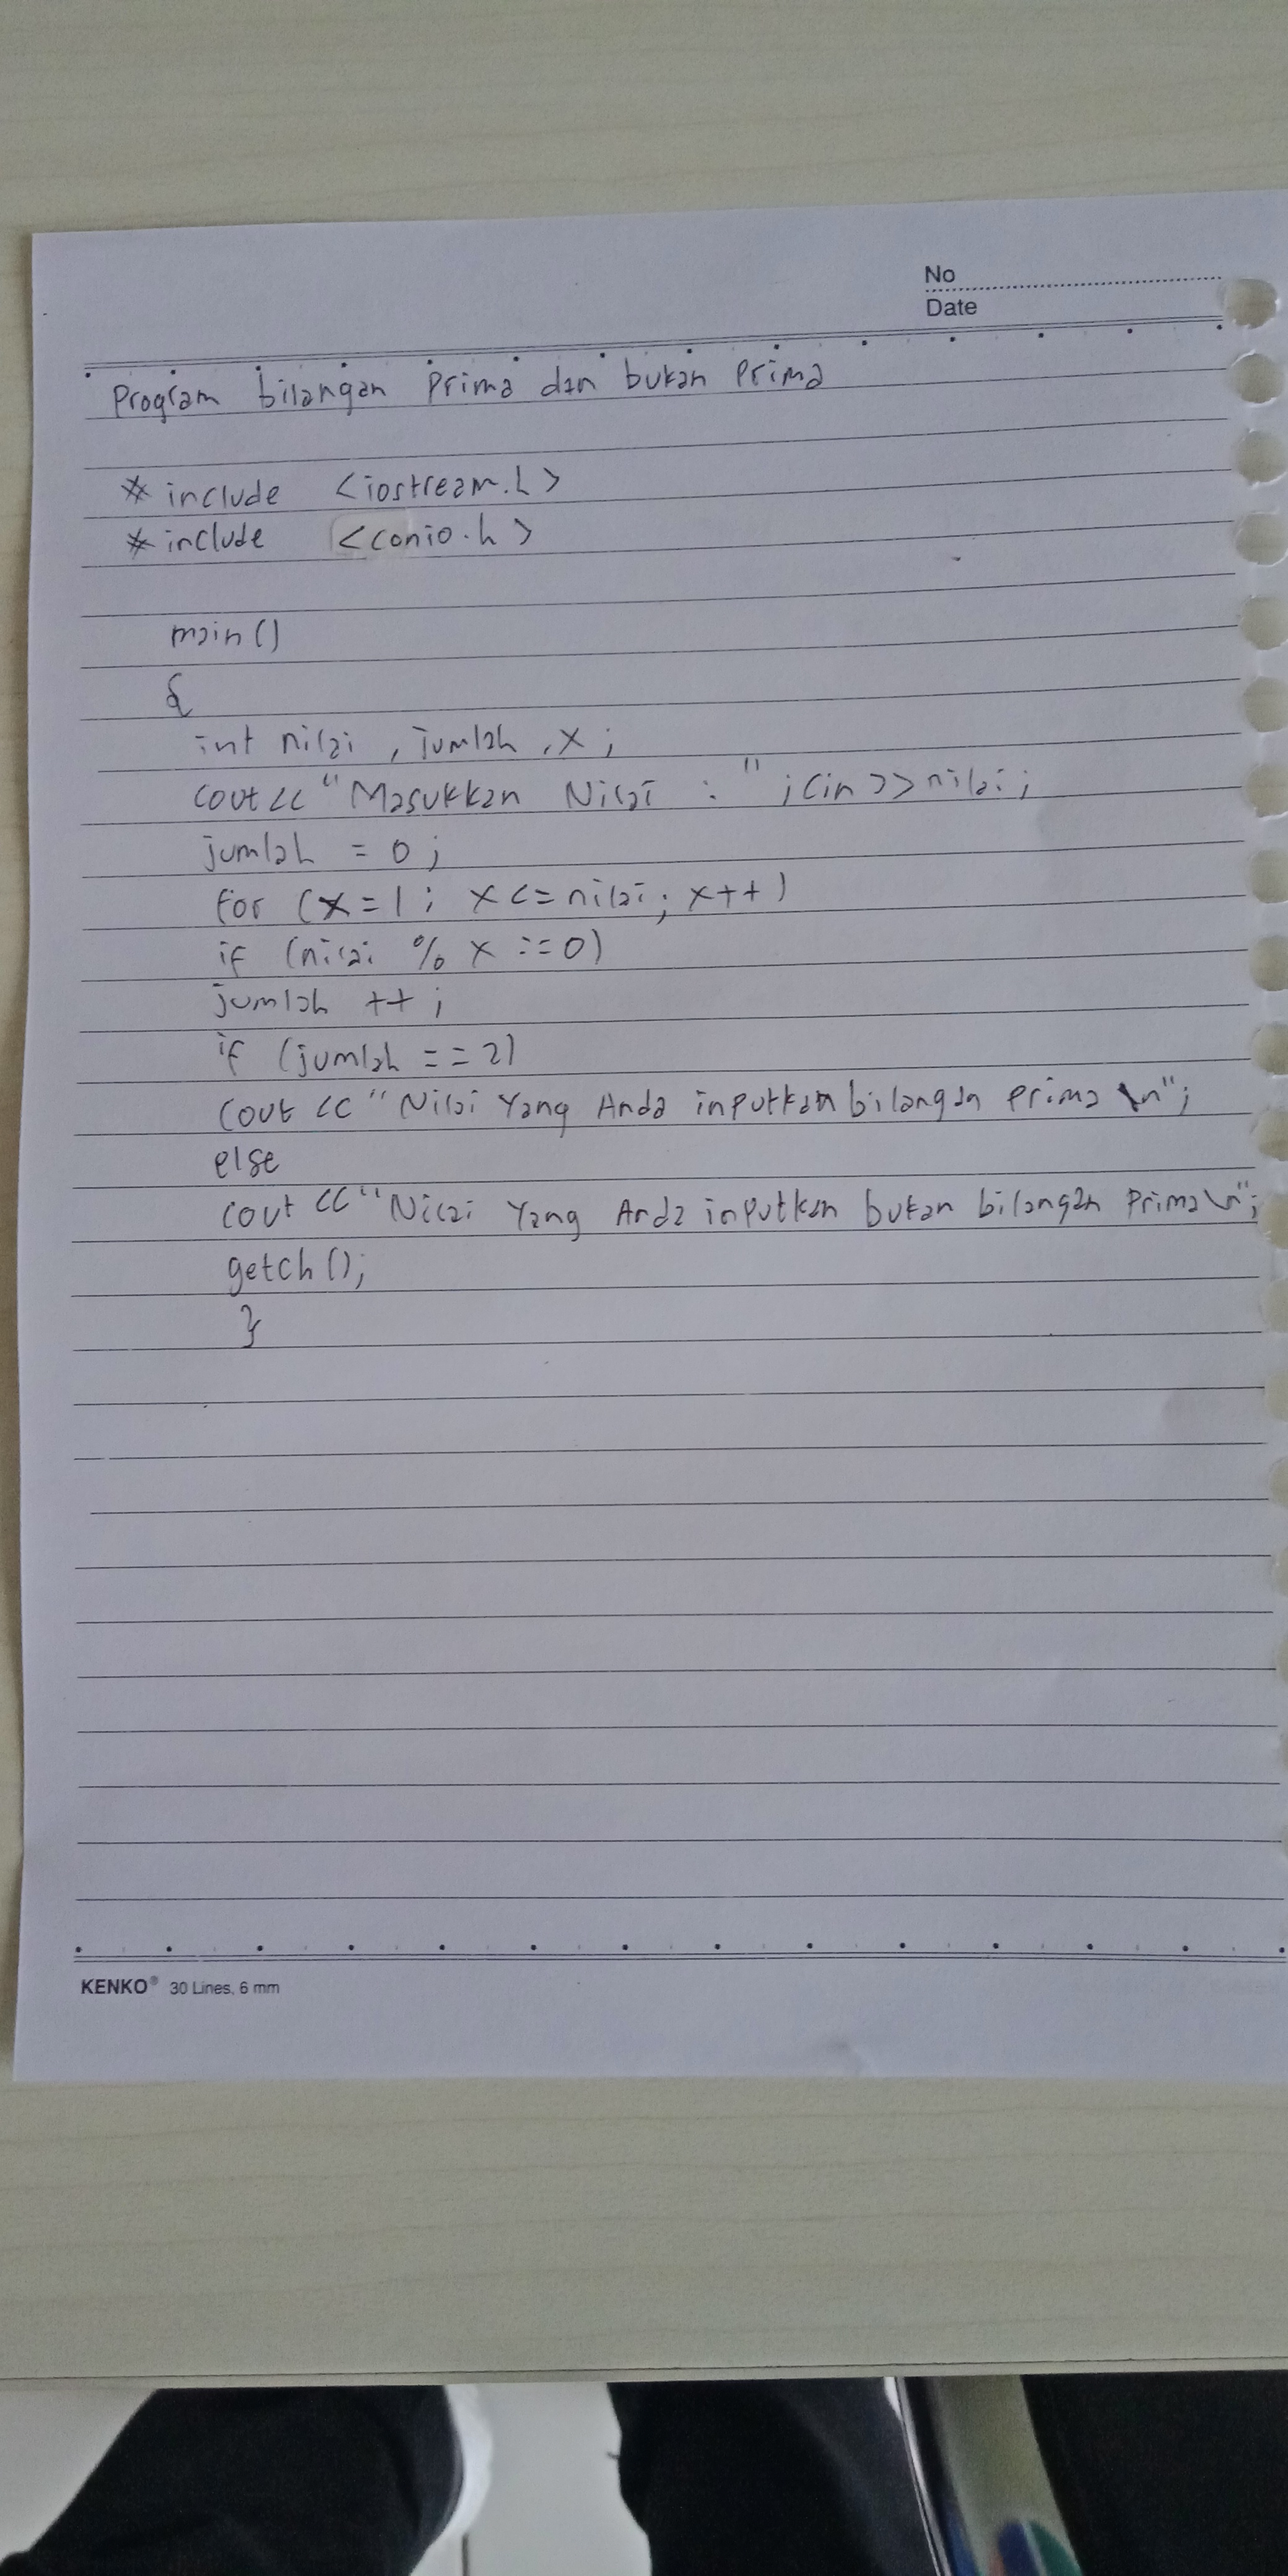 No
Date
Program bilangan Prima dan bukan Prima
# include <iostream.h>
# include <conio.h>
main()
{
int nilai, jumlah, x;
cout << "Masukkan Nilai : "; cin >> nilai;
jumlah = 0;
for (x=1; x<=nilai; x++)
if (nilai % x ==0)
jumlah ++;
if (jumlah == 2)
cout << "Nilai Yang Anda inputkan bilangan prima \n";
else
cout << "Nilai Yang Anda inputkan bukan bilangan Prima \n";
getch();
}
KENKO® 30 Lines, 6 mm